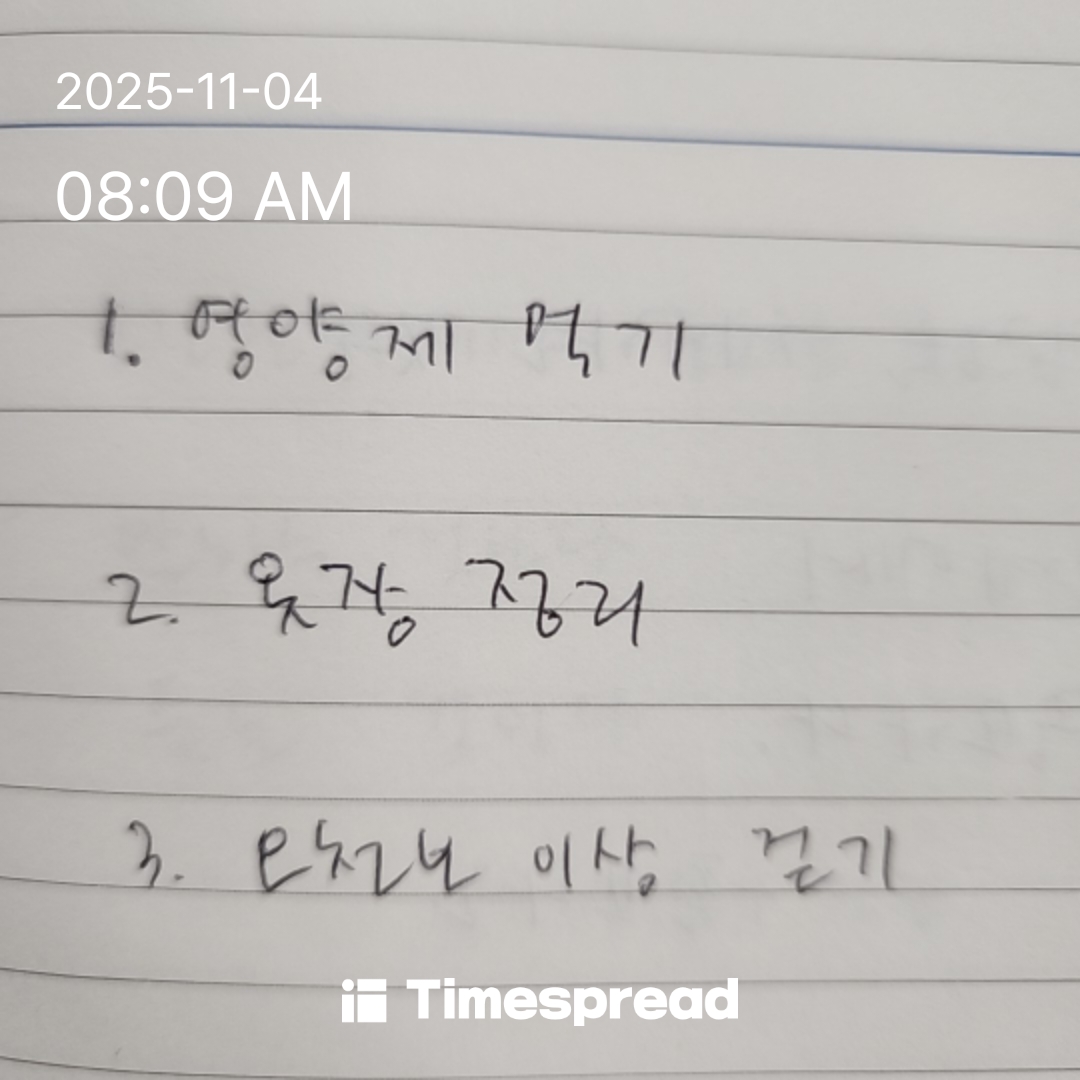 2025-11-04
08:09 AM
1. 영양제 먹기
2. 옷장 정리
3. 오천보 이상 걷기
Timespread